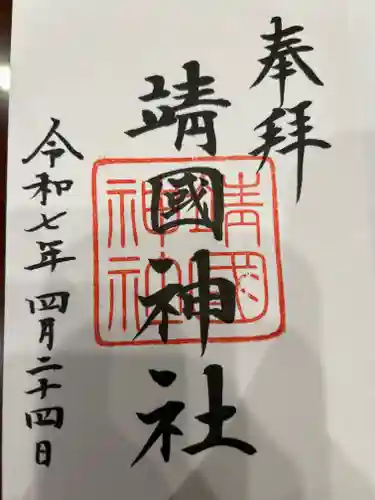 奉拝
靖國神社
靖國
神社
令和七年四月二十四日